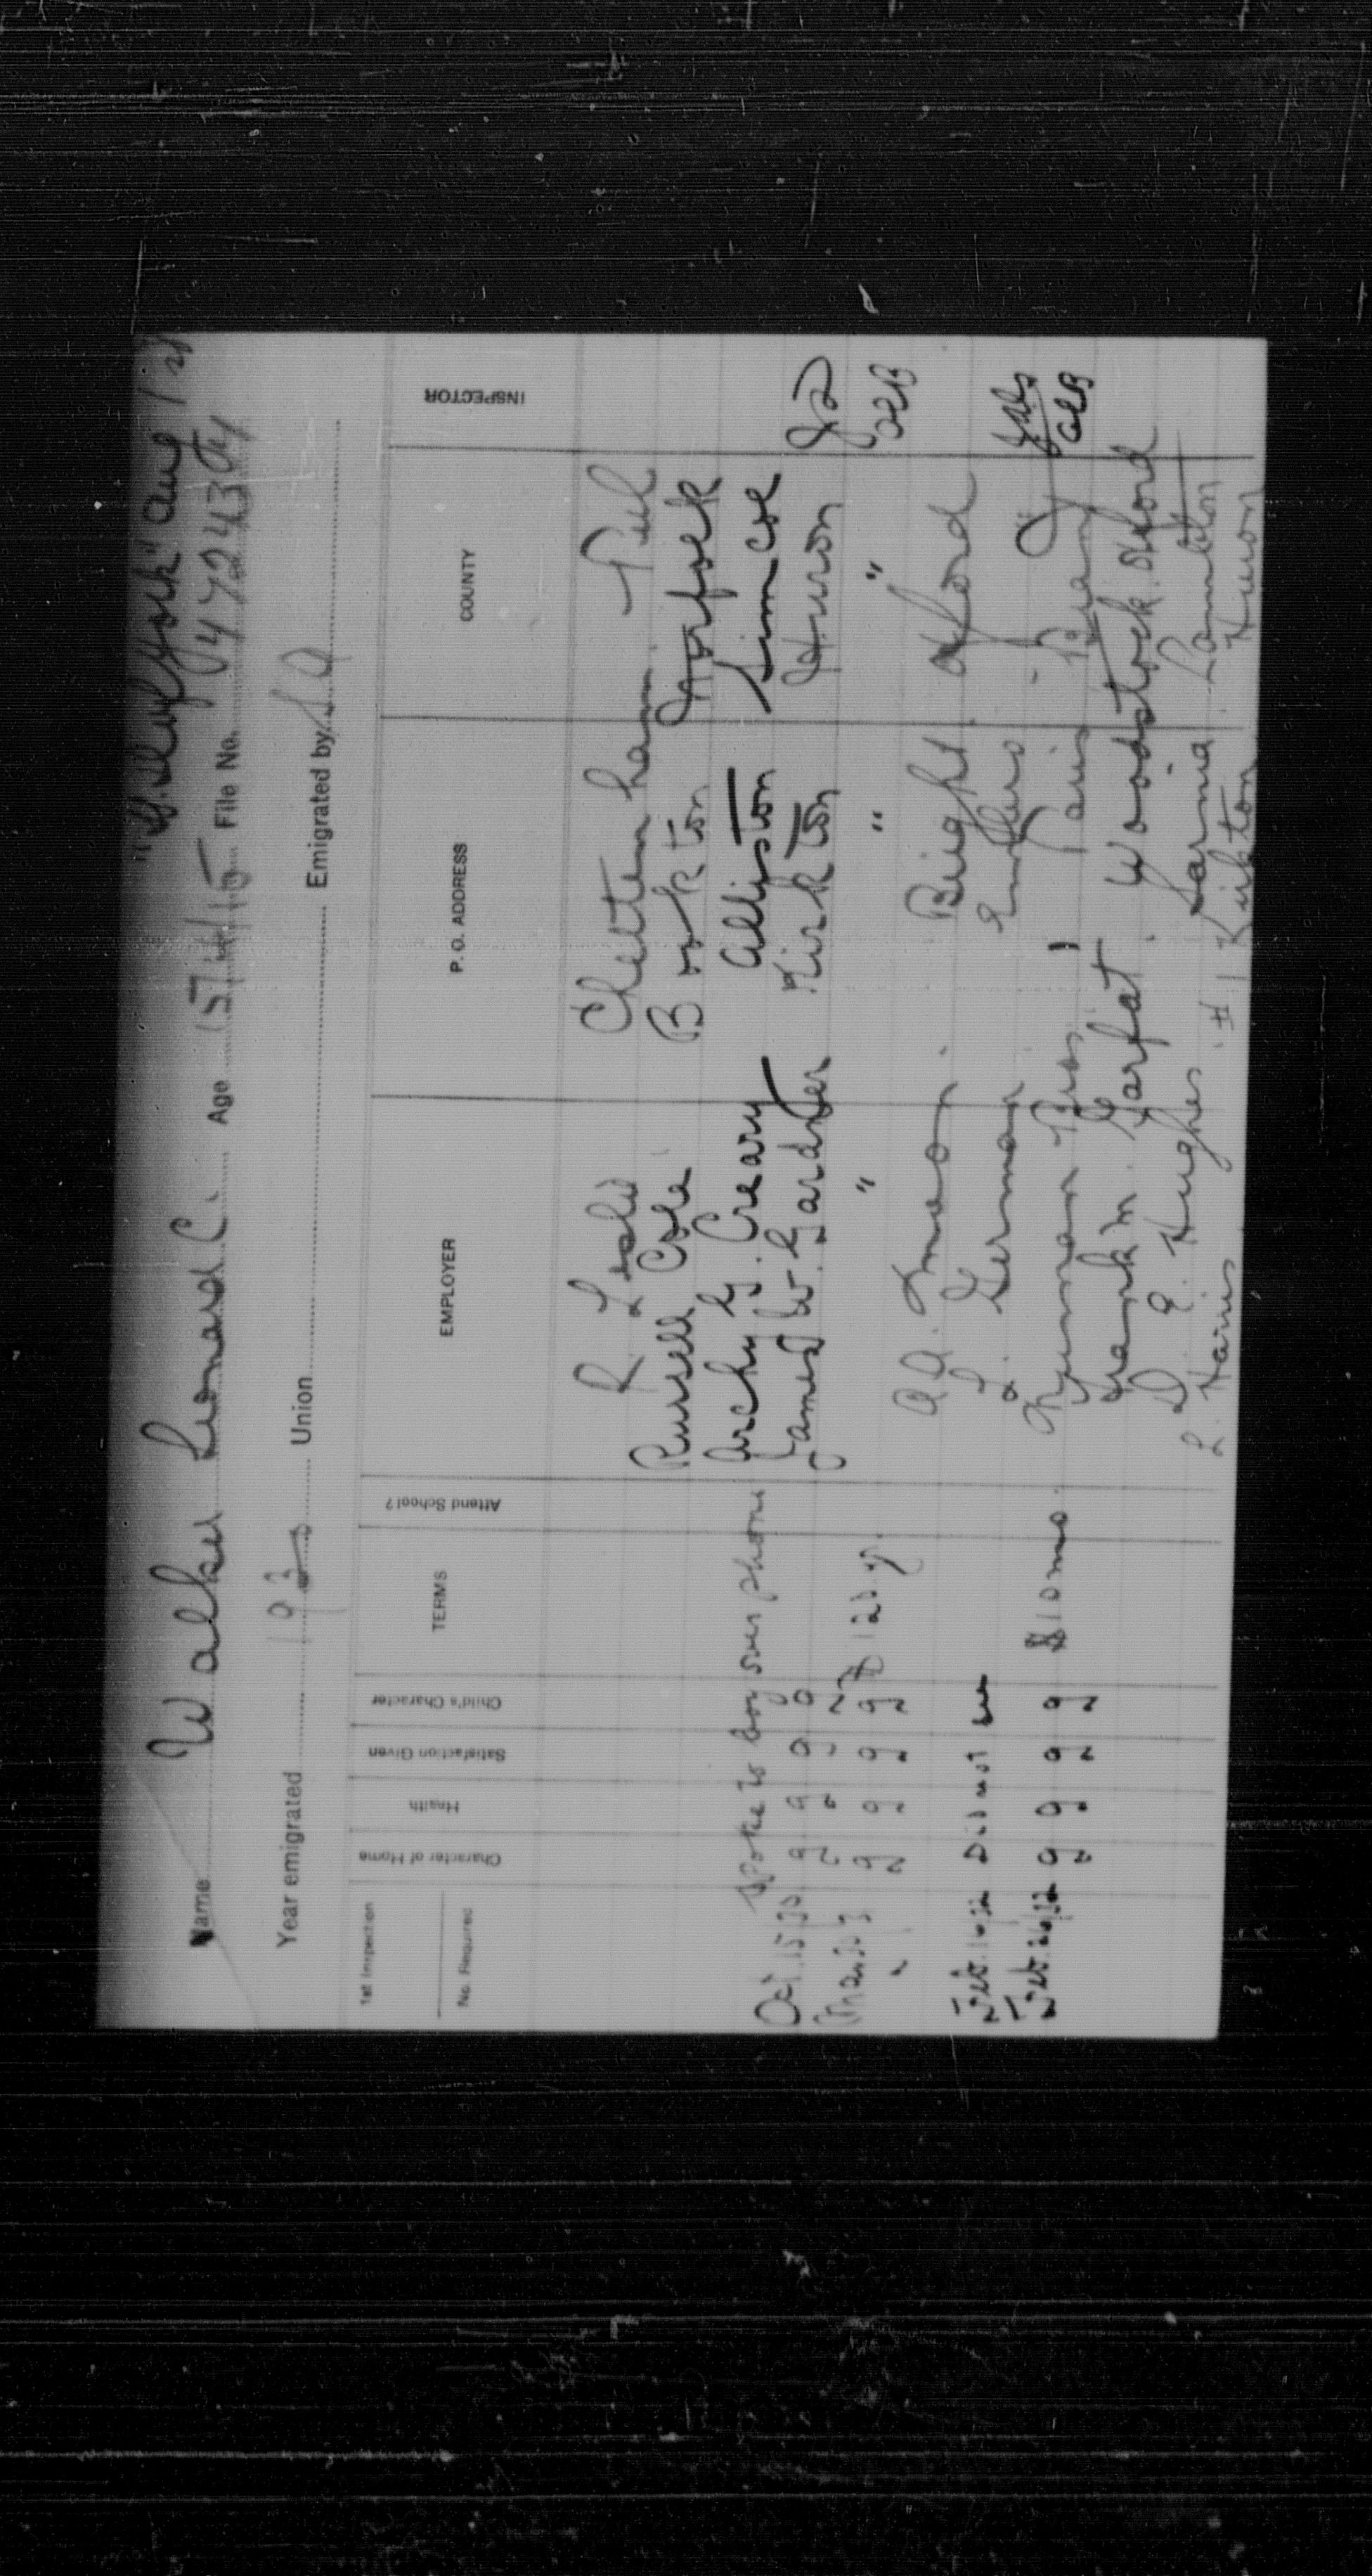 Name Walker Leonard C. Age 15 File No. 472430
Year emigrated 192 Union Emigrated by S.A.
1st Inspection
No. Required
Character of Home
Health
Satisfaction Given
Child's Character
TERMS
Attend School?
EMPLOYER
P. O. ADDRESS
COUNTY
INSPECTOR
R Leslie Cheltenham Peel
Russell Cole Bookton Norfolk
Archy G. Creary Alliston Simcoe
Oct. 15 30 Spoke to boy over phone James W. Gardner Kirkton Huron
g g g g
" g g g g $ 125 y " " "
A.A. Bright Oxford
L. German Embro
Feb. 16/32 Did not see
Feb. 26/32 g g g g $10 mo. Bros. Paris
Frank M. Garfat Woodstock Oxford
D. E. Hughes Sarnia Lambton
L. Harris #1 Kirkton Huron